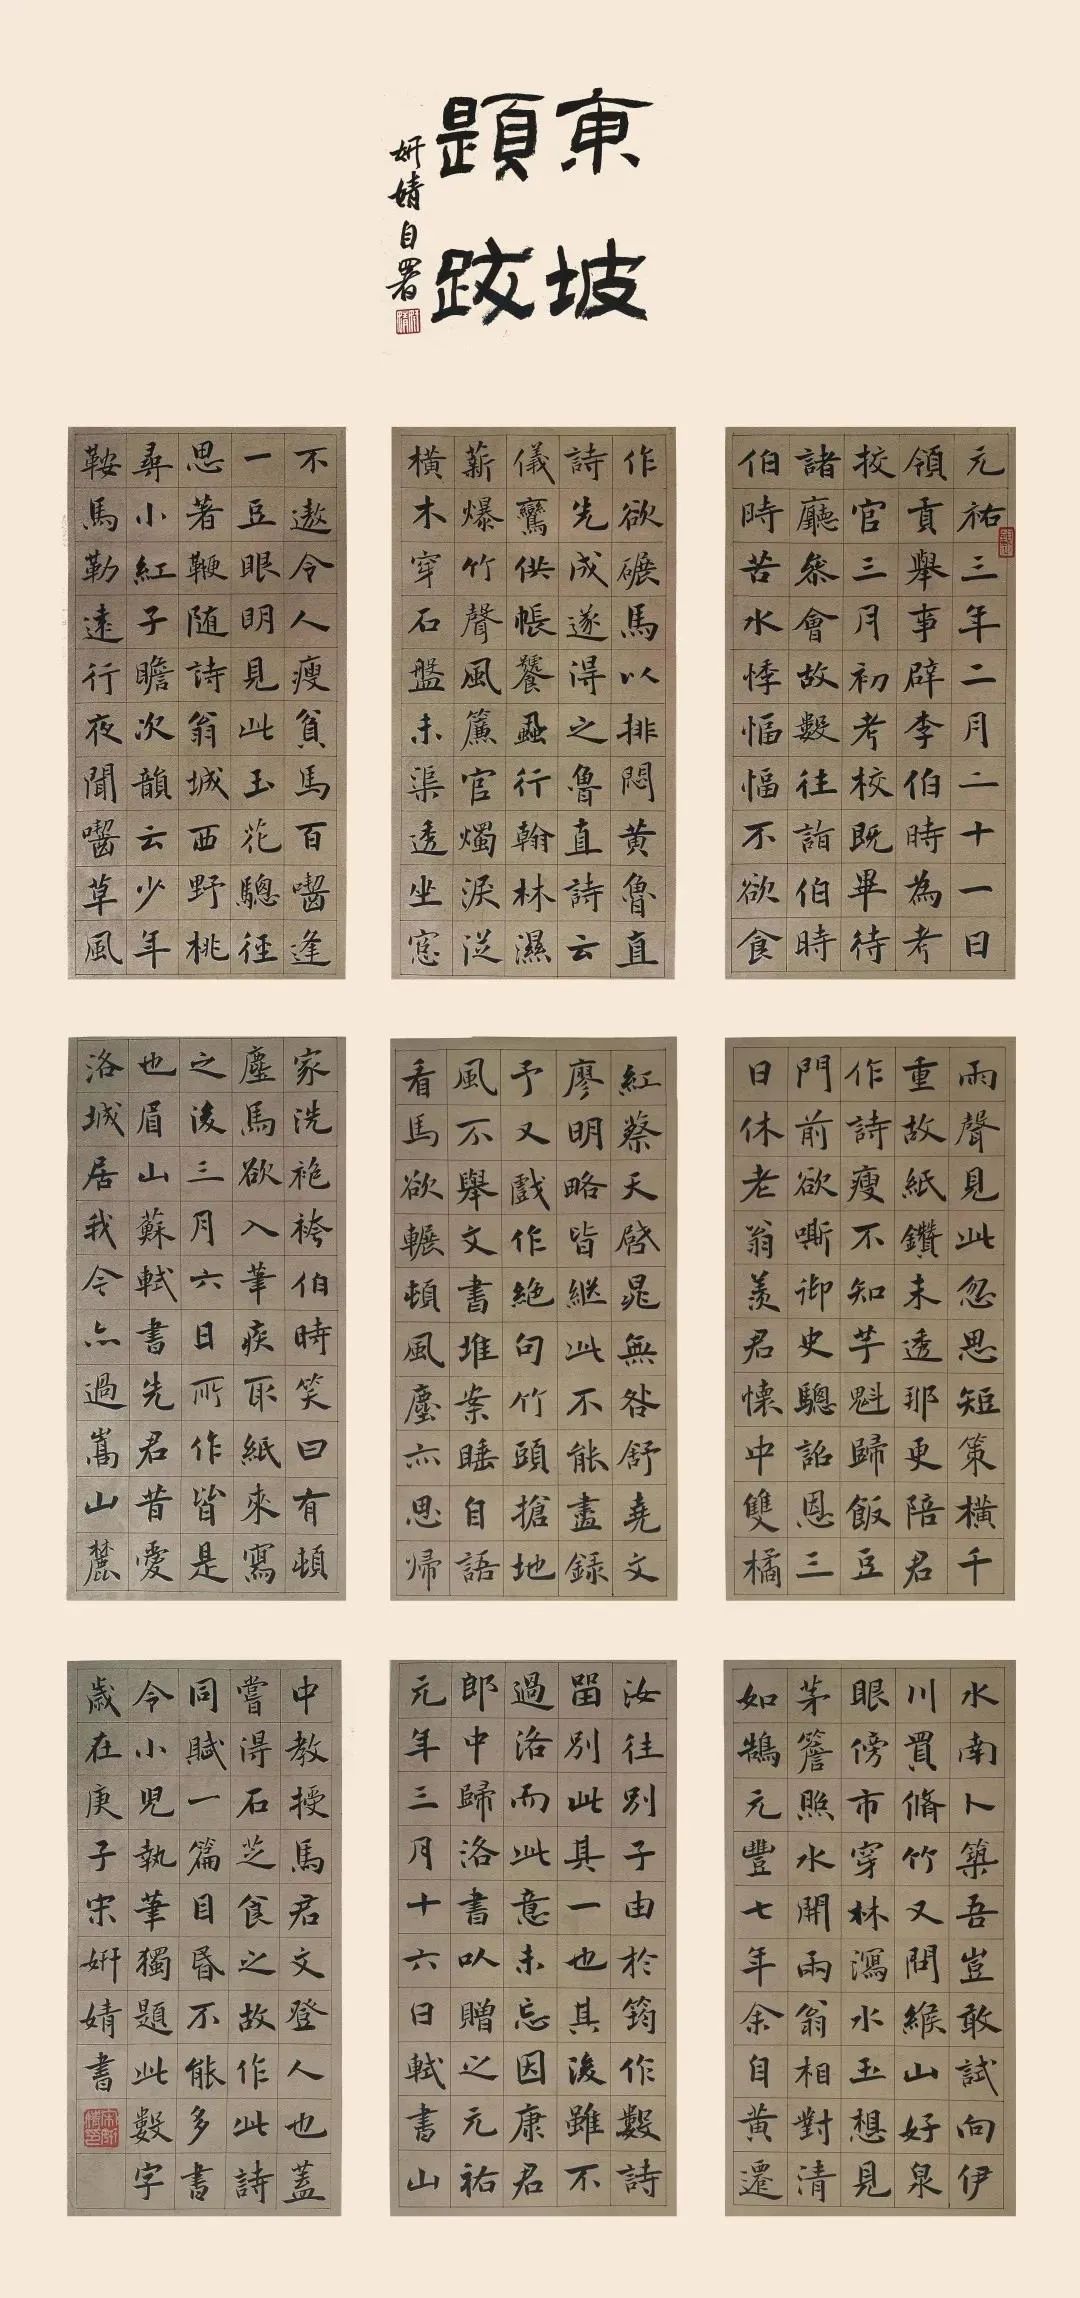 東坡
題跋
妍婧自署
元祐三年二月二十一日
領貢舉事辟李伯時為考
挍官三月初考校既畢待
諸廳叅會故數往詣伯時
伯時苦水悸愊愊不欲食
作欲碾馬以排悶黄魯直
詩先成遂得之魯直詩云
儀鸞供帳饕蝨行翰林濕
薪爆竹聲風簾官燭淚從
橫木穿石盤未渠透坐窓
不遨令人瘦貧馬百囓逢
一豆眼明見此玉花驄徑
思著鞭随詩翁城西野桃
尋小紅子瞻次韻云少年
鞍馬勤遠行夜聞囓草風
雨聲見此忽思短策橫千
重故紙鑽未透那更陪君
作詩瘦不知芋魁歸飯豆
門前欲嘶御史驄詔恩三
日休老翁羨君懷中雙橘
紅蔡天啓晁無咎舒堯文
廖明略皆継此不能盡録
予又戲作絕句竹頭搶地
風不舉文書堆案睡自語
看馬欲輾頓風塵亦思歸
家洗袍袴伯時笑曰有頓
塵馬欲入筆疾取紙來寫
之後三月六日所作皆是
也眉山蘇軾書先君昔愛
洛城居我今亦過嵩山麓
水南卜築吾豈敢試向伊
川買脩竹又問緱山好泉
眼傍市穿林瀉水玉想見
茅簷照水開兩翁相對清
如鵠元豐七年余自黄遷
汝往別子由於筠作數詩
留別此其一也其後雖不
過洛而此意未忘因康君
郎中歸洛書以贈之元祐
元年三月十六日軾書山
中教授馬君文登人也蓋
嘗得石芝食之故作此詩
同賦一篇目昏不能多書
令小兒執筆獨題此數字
歲在庚子宋妍婧書